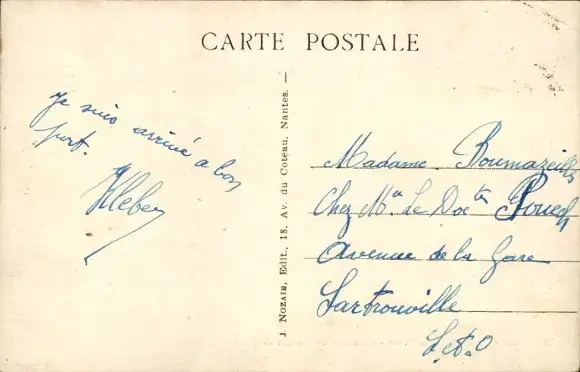 CARTE POSTALE
Je suis arrivé a bon
port.
Kleber
J. NOZAIS, Edit., 18, Av. du Coteau, Nantes. —
Madame Boumazeille
Chez Mr Le Docter Pouech
Avenue de la Gare
Sartrouville
S.&.O